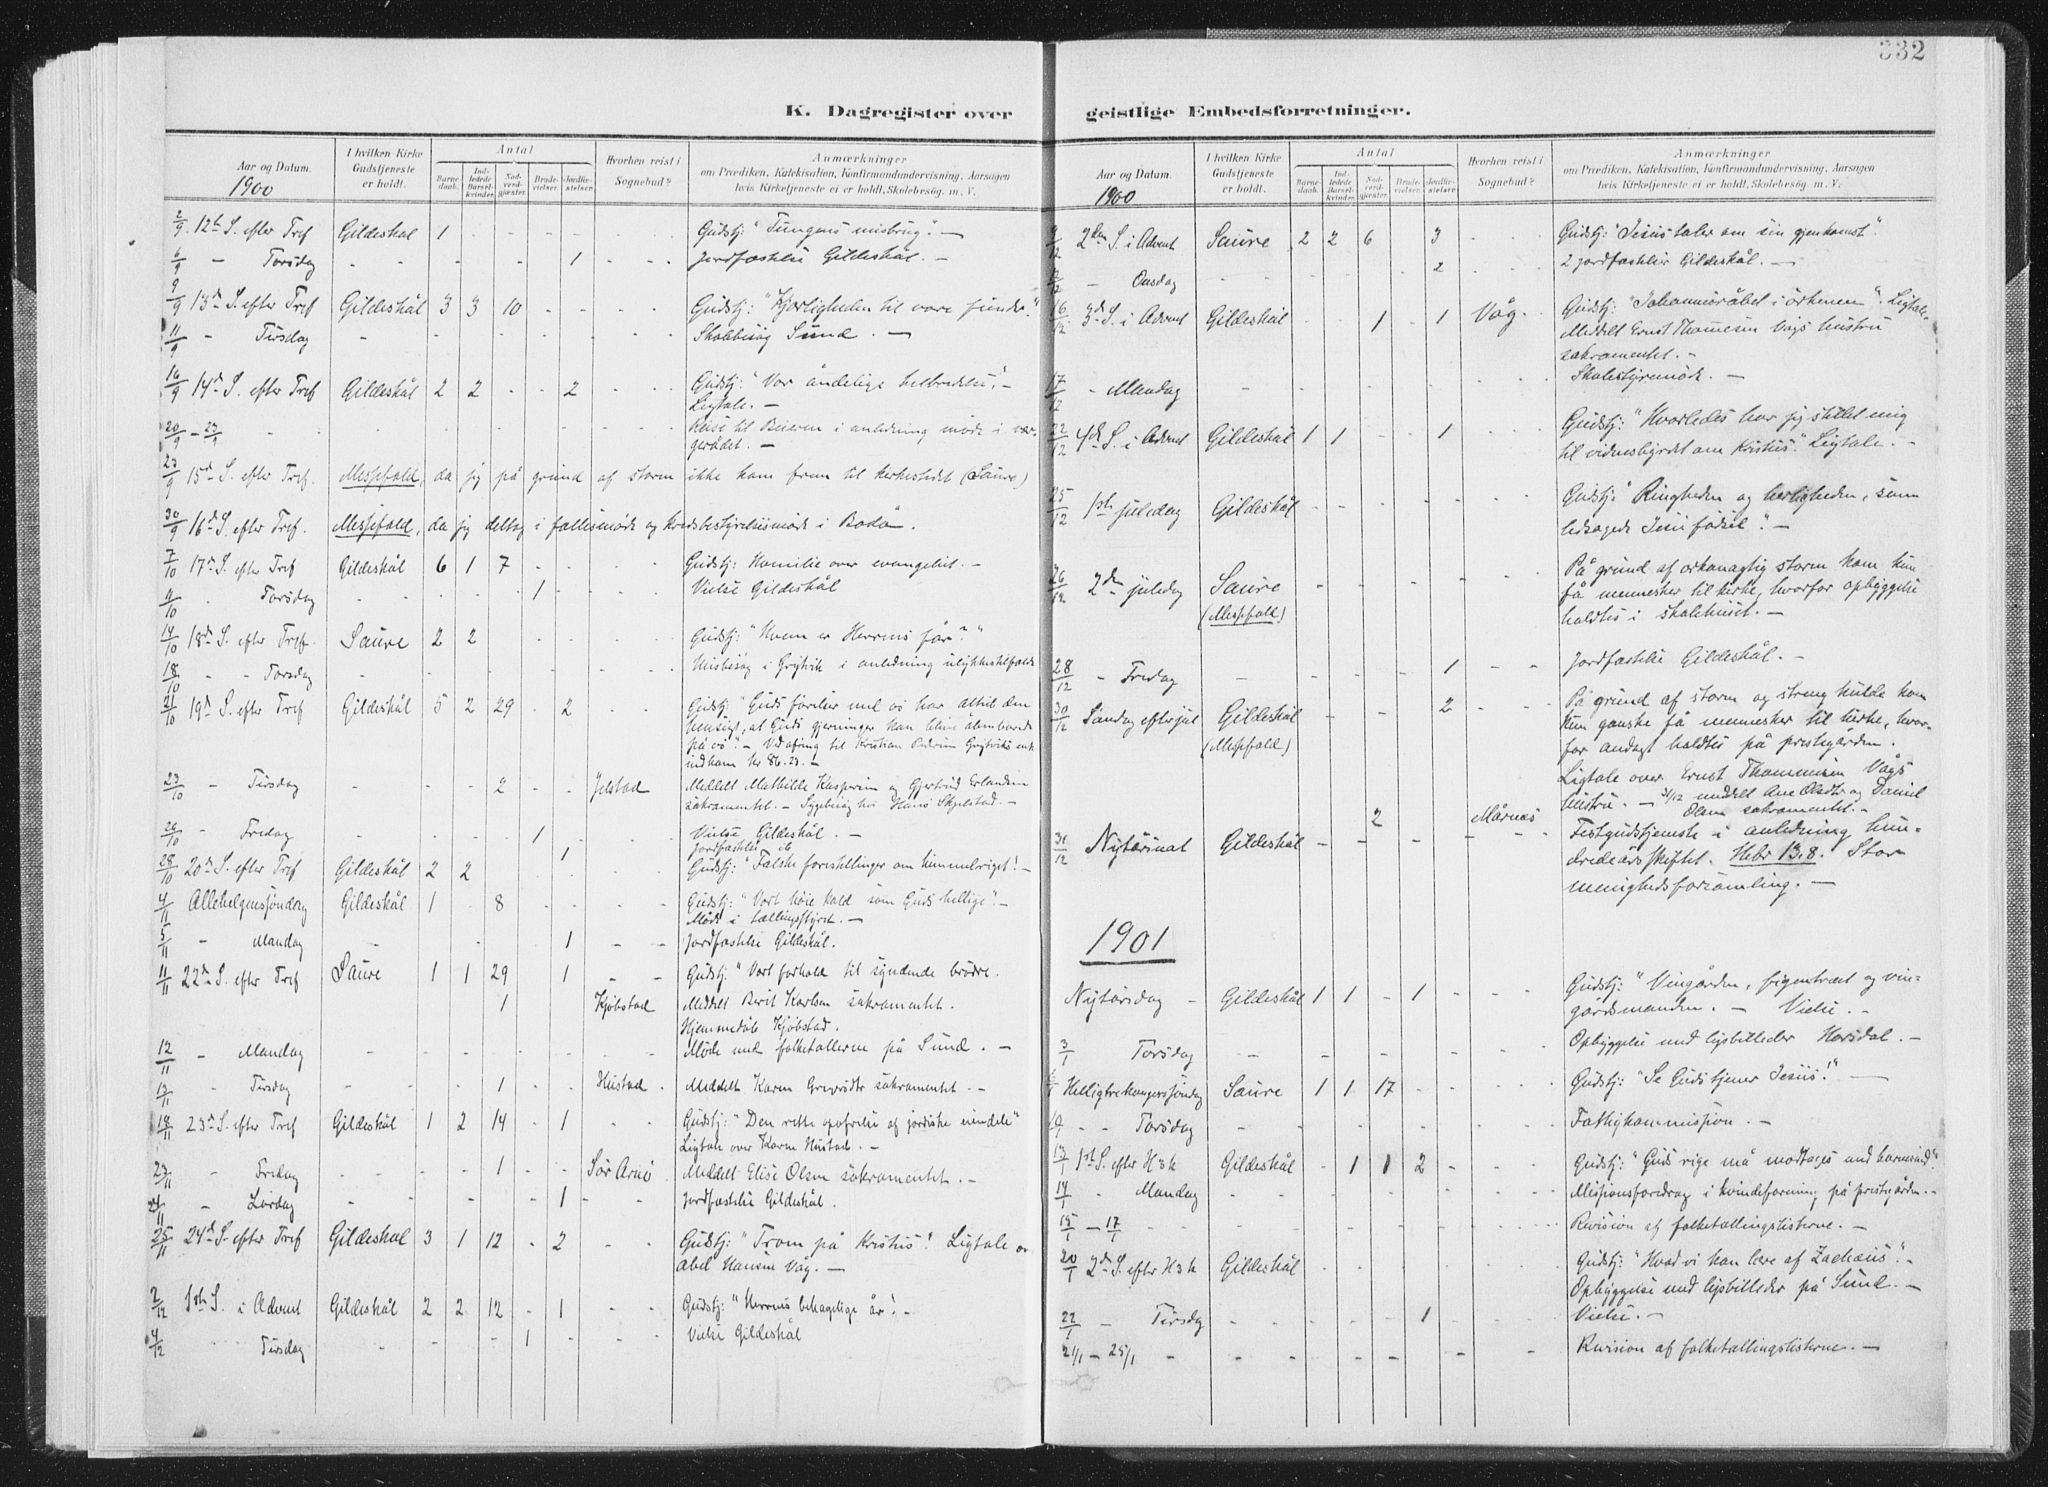 332
K. Dagregister over geistlige Embedsforretninger.
Aar og Datum.
1900
I hvilken Kirke Gudstjeneste er holdt.
Antal
Barnedaab.
Indledede Barselkvinder.
Nadverdgjæster.
Brudevielser.
Jordfæstelser.
Hvorhen reist i Sognebud?
Anmærkninger
om Prædiken, Katekisation, Konfirmandundervisning, Aarsagen
hvis Kirketjeneste ei er holdt, Skolebesøg. m. V.
2/9 12te S. efter Tref Gildeskål 1 - - - - - - Gudstj: "Tungens misbrug". -
6/9 - Torsdag - - - - - 1 - - Jordfæstelse Gildeskål. -
9/9 13de S. efter Tref Gildeskål 3 3 10 - - - - Gudstj: "Kjærligheden til vore fiender".
11/9 - Tirsdag - - - - - - - Skolebesøg Sund. -
16/9 14de S. efter Tref Gildeskål 2 2 - - 2 - - Gudstj: "Vor åndelige helbredelse". -
Ligtale. -
20/9 - 23/9 - Reise til Beieren i anledning møde i vær-
gerådet. -
23/9 15de S. efter Tref. Messefald, da jeg på grund af storm ikke kom frem til kirkestedet (Saure)
30/9 16de S. efter Tref. Messefald, da jeg deltog i fællesmøde og kredsbestyrelsesmøde i Bodø.
7/10 17de S. efter Tref Gildeskål 6 1 7 - - - - Gudstj: Homilie over evangeliet. -
11/10 - Torsdag - - - - 1 - - - Vielse Gildeskål
14/10 18de S. efter Tref. Saure 2 2 - - - - - Gudstj: "Hvem er Herrens får?"
18/10 - - Torsdag - - - - - - - Husbesøg i Grytvik i anledning ulykkestilfælde
21/10 19de S. efter Tref Gildeskål 5 2 29 - 2 - - Gudstj: "Guds førelse med os har altid den
hensigt, at Guds gjerninger kan blive åbenbarede
på os". -
23/10 - Tirsdag - - - 2 - - Jelstad Meddelt Mathilde Kaspersen og Gjertrud Erlandsen
sakramentet. - Sygebesøg hos Hans Skjelstad. -
26/10 - Fredag - - - - 1 - - Vielse Gildeskål. -
Jordfæstelse do
28/10 20de S. efter Tref Gildeskål 2 2 - - 1 - - Gudstj: "Falske forestillinger om himmelriget". -
4/11 Allehelgenssøndag Gildeskål 1 - 8 - - - - Gudstj: "Vort høie kald som Guds hellige". -
Møde i tællingsstyret. -
5/11 - Mandag - - - - - 1 - - Jordfæstelse Gildeskål.
11/11 22de S. efter Tref Saure 1 1 29 - 1 - - Gudstj: "Vort forhold til syndende brødre.
1 Kjøbstad Meddelt Berit Karlsen sakramentet.
Hjemmedåb Kjøbstad.
12/11 - Mandag - - - - - - - Møde med folketællerne på Sund. -
13/11 - Tirsdag - - - 1 - - Hustad - Meddelt Karen sakramentet. -
18/11 23de S. efter Tref Gildeskål 1 2 14 - 1 - - Gudstj: "Den rette opofrelse af jordiske eiendele"
Ligtale over Karen Hustad. -
23/11 - Fredag - - - 1 - - Sør Arnø Meddelt Elise Olsen sakramentet. -
24/11 - Lørdag - - - - - 1 - - Jordfæstelse Gildeskål.
25/11 24de S. efter Tref Gildeskål 3 1 12 - 2 - - Gudstj: "Troen på Kristus". Ligtale ov.
Abel Hansen Våg. -
2/12 1ste S. i Advent Gildeskål 2 2 12 - 1 - - Gudstj: "Herrens behagelige år". -
4/12 Tirsdag - - - - 1 - - - Vielse Gildeskål
Aar og Datum.
1900
I hvilken Kirke Gudstjeneste er holdt.
Antal
Barnedaab.
Indledede Barselkvinder.
Nadverdgjæster.
Brudevielser.
Jordfæstelser.
Hvorhen reist i Sognebud?
Anmærkninger
om Prædiken, Katekisation, Konfirmandundervisning, Aarsagen
hvis Kirketjeneste ei er holdt, Skolebesøg. m. V.
9/12 2den S. i Advent Saure 2 2 6 3 - - - Gudstj: "Jesus taler om sin gjenkomst".
- Onsdag - - - - - 2 - - 2 jordfæstelser Gildeskål. -
16/12 3de S. i Advent Gildeskål - - 1 - 1 Våg. Gudstj: "Johannes døber i ørkenen". Ligtale.
Meddelt Ernst Thomesen Vågs hustru
sakramentet. -
17/12 - Mandag - - - - - - - Skolestyremøde. -
4de S. i Advent Gildeskål 1 1 - - 1 - - Gudstj: "Hvorledes har jeg stillet mig
til vidnesbyrdet om Kristus". Ligtale. -
25/12 1ste juledag Gildeskål - - - - - - - Gudstj: "Ringheden og herligheden, som
ledsagede Jesu fødsel". -
26/12 2den juledag Saure
(Messefald) - - - - - På grund af orkanagtig storm kom kun
få mennesker til kirke, hvorfor opbyggelse
holdtes i skolehuset. -
28/12 - Fredag - - - - - 1 - - Jordfæstelse Gildeskål. -
30/12 Søndag efter jul Gildeskål
(Messefald) - - - - 2 - - På grund af storm og streng kulde kom
kun ganske få mennesker til kirke, hvor-
for andagt holdtes på prestegården.
Ligtale over Ernst Thommesen Vågs
hustru. - 31/12 meddelt Ane Olsdtr og Daniel
2 Mårnes Olsen sakramentet. -
31/12 Nytårsnat Gildeskål - - - - - - - Festgudstjeneste i anledning hun-
dredeårsskiftet. Hebr 13.8. Stor
menighedsforsamling. -
1901
Nytårsdag - Gildeskål 1 1 - 1 - - - Gudstj: "Vingården, figentræet og vin-
gårdsmanden. - Vielse. -
3/1 Torsdag - - - - - - - Opbyggelse med lysbilleder Horsdal. -
6/1 Helligtrekongerssøndag Saure 1 1 17 - - - - Gudstj: "Se Guds tjener Jesus!" -
- - Torsdag - - - - - - - Fattigkommission. -
13/1 1ste S. efter H3k Gildeskål - 1 1 2 - - - Gudstj: "Guds rige må modtages med barnesind".
14/1 - Mandag - - - - - - - Missionsforedrag i kvindeforening på prestegården. -
15/1 - 17/1 - - - - - - - Revision af folketællingslisterne. -
20/1 2den S. efter H3k Gildeskål - - - - - - - Gudstj: "Hvad vi kan lære af Zachæus". -
Opbyggelse med lysbilleder på Sund. -
22/1 - Tirsdag - - - - 1 - - - Vielse. -
21/1 - 25/1 - - - - - - - Revision af folketællingslisterne. -